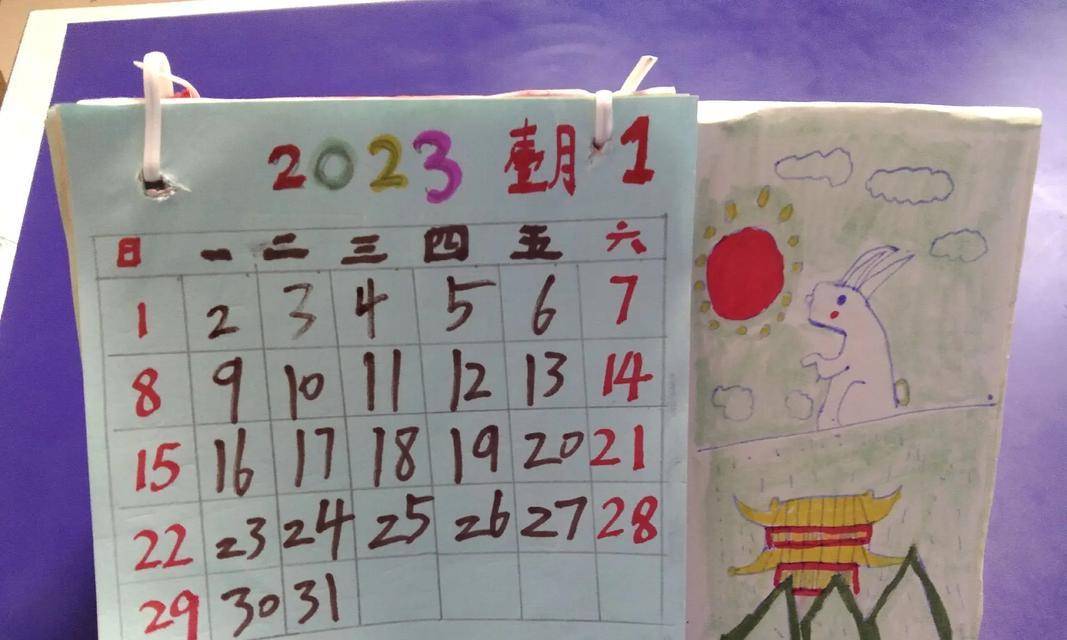 2023 壹月 1
日 一 二 三 四 五 六
1 2 3 4 5 6 7
8 9 10 11 12 13 14
15 16 17 18 19 20 21
22 23 24 25 26 27 28
29 30 31